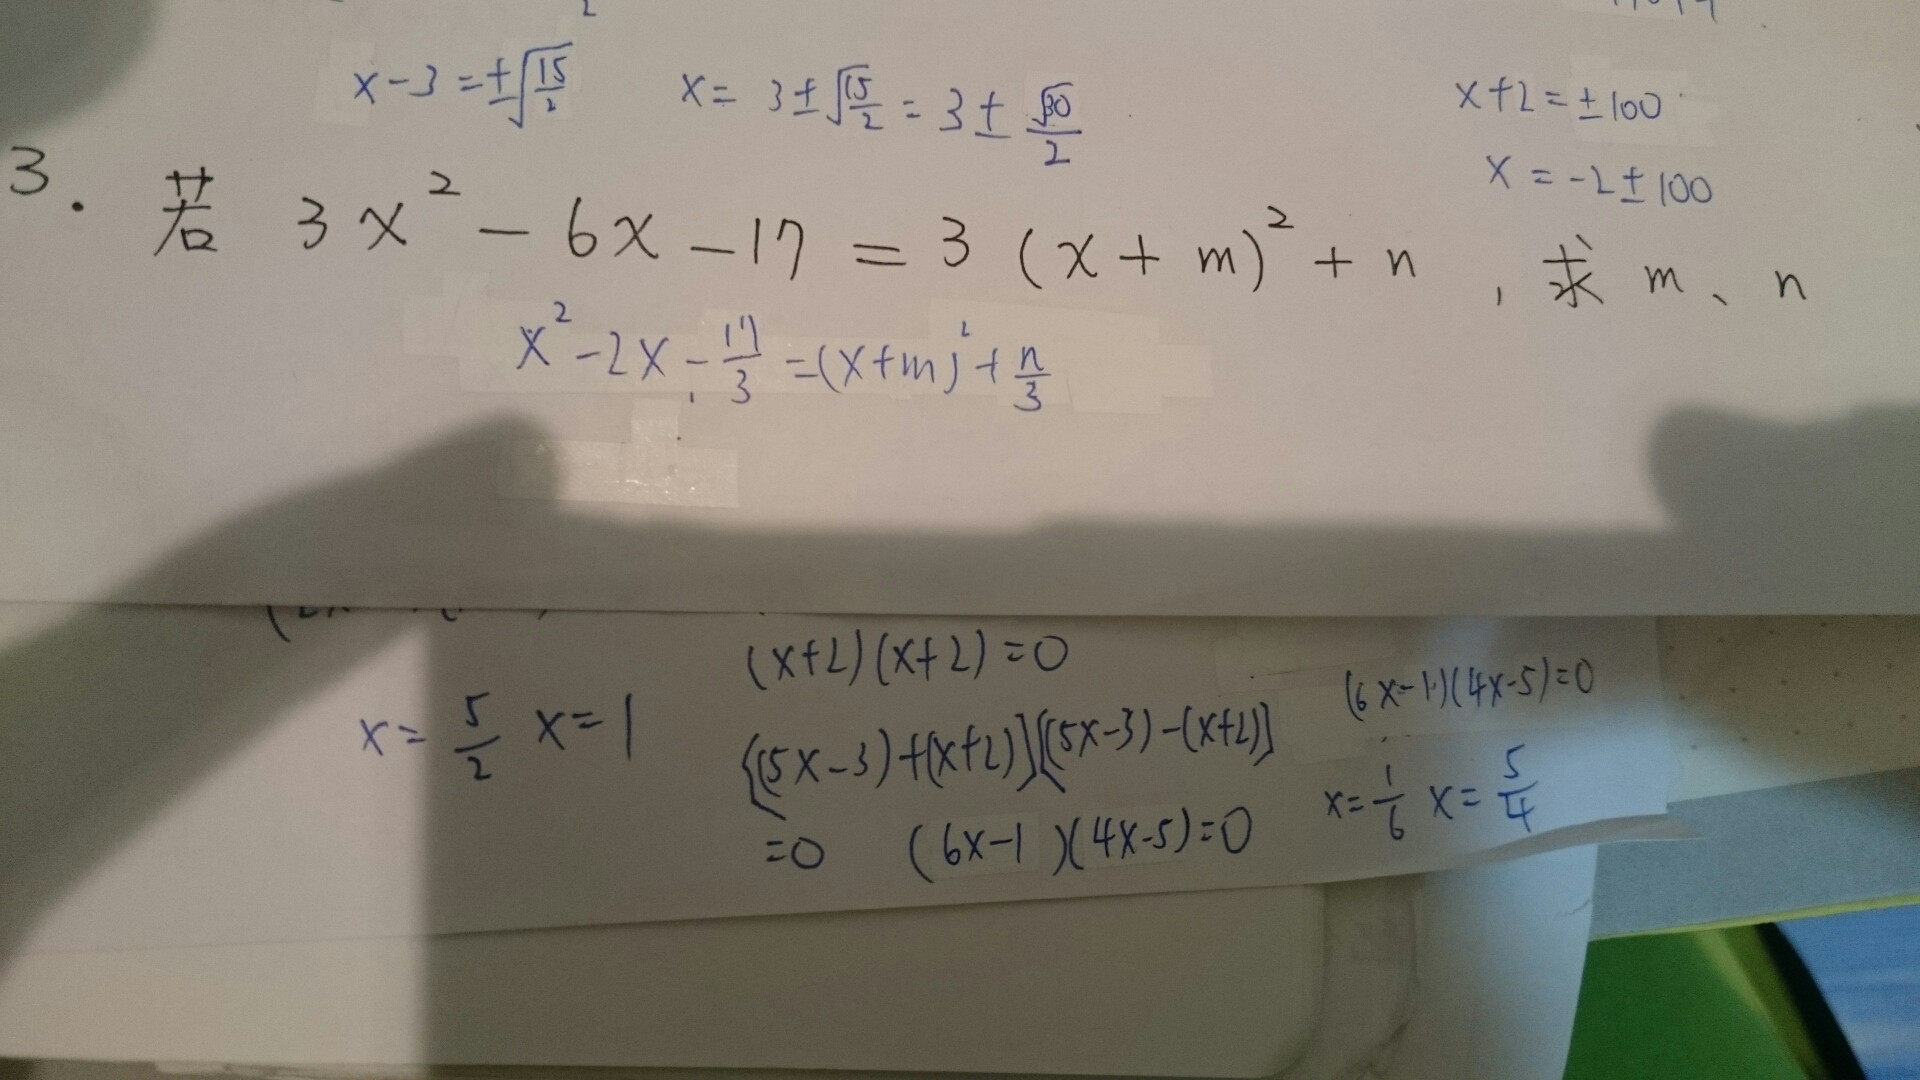 x-3=±√(15/2)   x=3±√(15/2)=3±√30/2   x+2=±100
x=-2±100
3. 若 3x²-6x-17=3(x+m)²+n, 求 m、n
x²-2x-17/3=(x+m)²+n/3
(x+2)(x+2)=0
x=5/2 x=1   {(5x-3)+(x+2)][(5x-3)-(x+2)]   (6x-1)(4x-5)=0
=0 (6x-1)(4x-5)=0   x=1/6 x=5/4